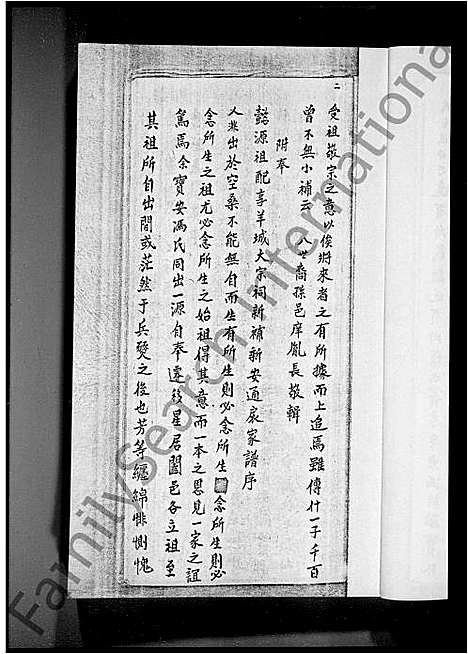 二
受祖敬宗之意以俟將來者之有所據而上追焉雖傳什一于千百
曾不無小補云 八世裔孫邑庠胤長敬輯
附奉
懿源祖配享羊城大宗祠新補新安通房家譜序
人非出於空桑不能無自而生有所生則必念所生念所生則必
念所生之祖尤必念所生之始祖得其意而一本之思見一家之誼
篤焉余寶安馮氏同出一源自奉遷後星居闔邑各立祖至
其祖所自出間或茫然于兵燹之後也芳等纏綿悱惻愧
FamilySearch International